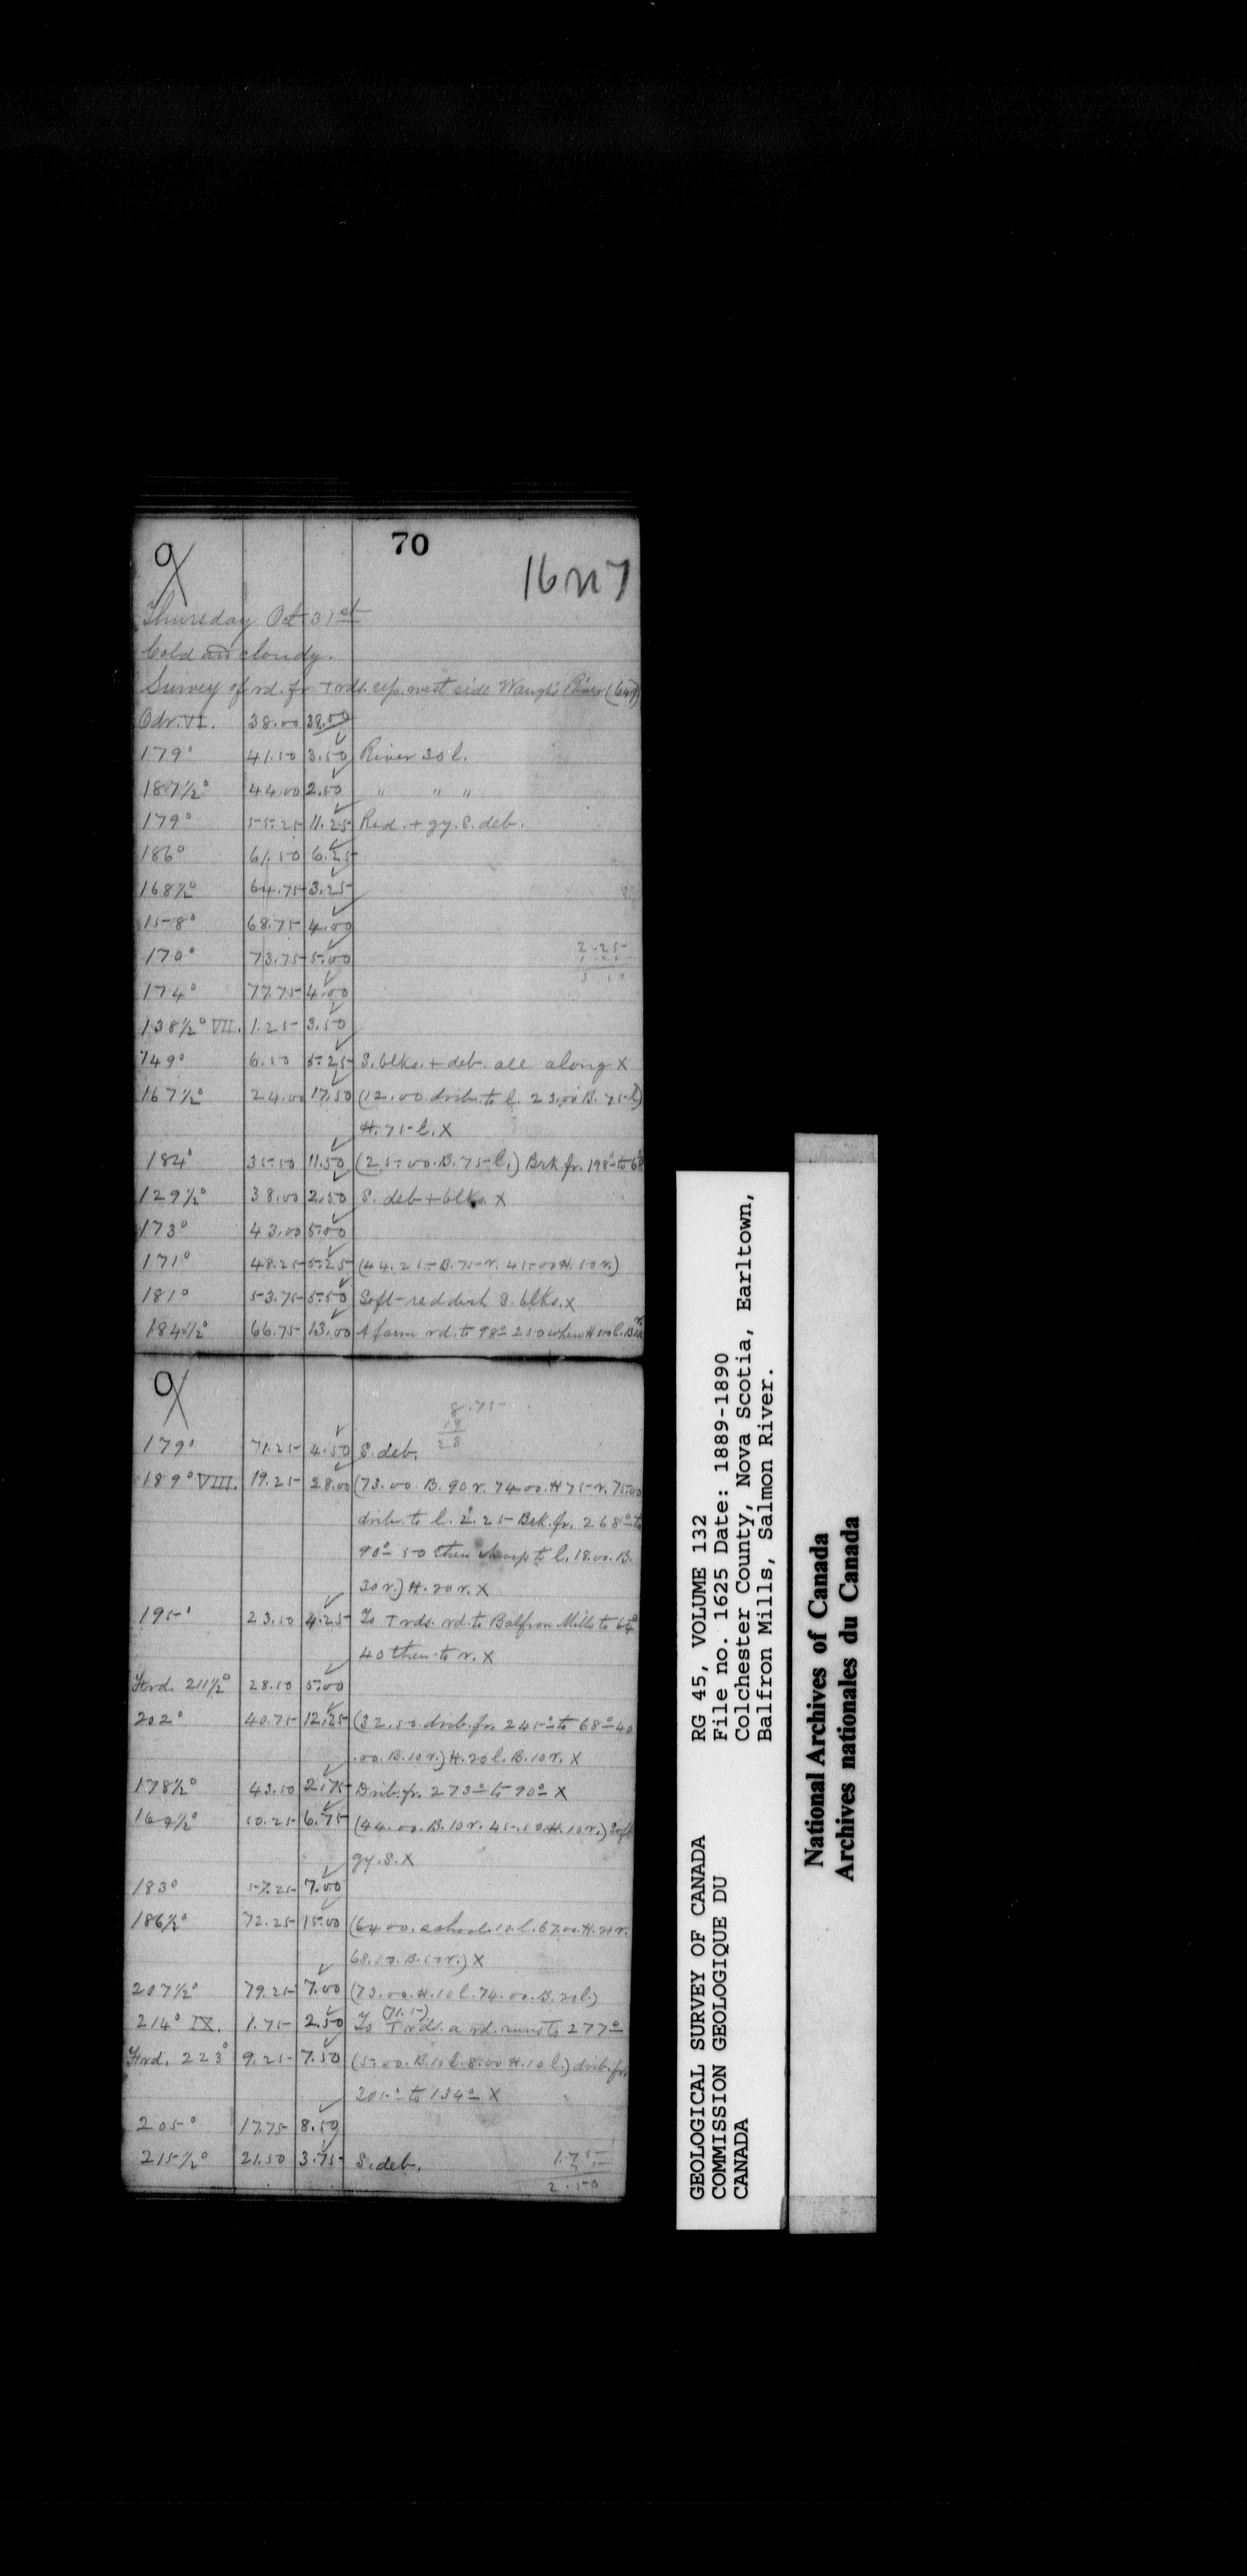 70
16 n 7
Thursday Oct 31st
Cold and cloudy.
Survey of rd. fr. T rds. opp. west side Waugh's River (64)
Odr. VI. 38.00 38.00
179° 41.50 3.50 River 30 l.
187½° 44.00 2.50 " " "
179° 55.25 11.25 Red. + gy. S. deb.
186° 61.50 6.25
168½° 64.75 3.25
158° 68.75 4.00
170° 73.75 5.00
174° 77.75 4.00
138½° VII. 1.25 3.50
149° 6.50 5.25 S. blks. + deb. all along X
167½° 24.00 17.50 (12.00 drib. to l. 23.00 B. 75 l)
H. 75 l. X
184° 35.50 11.50 (25.00 B. 75 l.) Brk fr. 198° to 68
129½° 38.00 2.50 S. deb + blks. X
173° 43.00 5.00
171° 48.25 5.25 (44.25 B. 75 r. 45.00 H. 50 r.)
181° 53.75 5.50 Soft reddish S. blks. X
184½° 66.75 13.00 A farm rd. to 98° 250 when H 500 l.
8.75
19
28
179° 71.25 4.50 S. deb.
189° VIII. 19.25 28.00 (73.00 B. 90 r. 74.00 H 75 r. 75.00
drib. to l. 2.25 Brk. fr. 268° to
90° 50 then sharp to l. 18.00 B.
30 r.) H. 20 r. X
195° 23.50 4.25 To T rds. rd. to Balfron Mills to 64°
40 then to r. X
Frd. 211½° 28.50 5.00
202° 40.75 12.25 (32.50 drib. fr. 245° to 68° 40
.00. B. 10 r.) H. 20 l. B. 10 r. X
178½° 43.50 2.75 Drib. fr. 273° to 90° X
169½° 50.25 6.75 (44.00. B. 10 r. 45.50 H. 10 r.) Soft
gy. S. X
183° 57.25 7.00
186½° 72.25 15.00 (64.00. school. 10. l. 67.00. H. 20 r.
68.50. B. 50 r.) X
207½° 79.25 7.00 (73.00. H. 10 l. 74.00. B. 20 l.)
(71.5)
214° IX. 1.75 2.50 To T rds. a rd. runs to 277°
Frd. 223° 9.25 7.50 (5.00. B. 10 l. 8.00 H. 10 l.) drib. fr.
205° to 134° X
205° 17.75 8.50
215½° 21.50 3.75 S. deb.
1.75
2.50
GEOLOGICAL SURVEY OF CANADA
COMMISSION GEOLOGIQUE DU
CANADA
RG 45, VOLUME 132
File no. 1625 Date: 1889-1890
Colchester County, Nova Scotia, Earltown,
Balfron Mills, Salmon River.
National Archives of Canada
Archives nationales du Canada